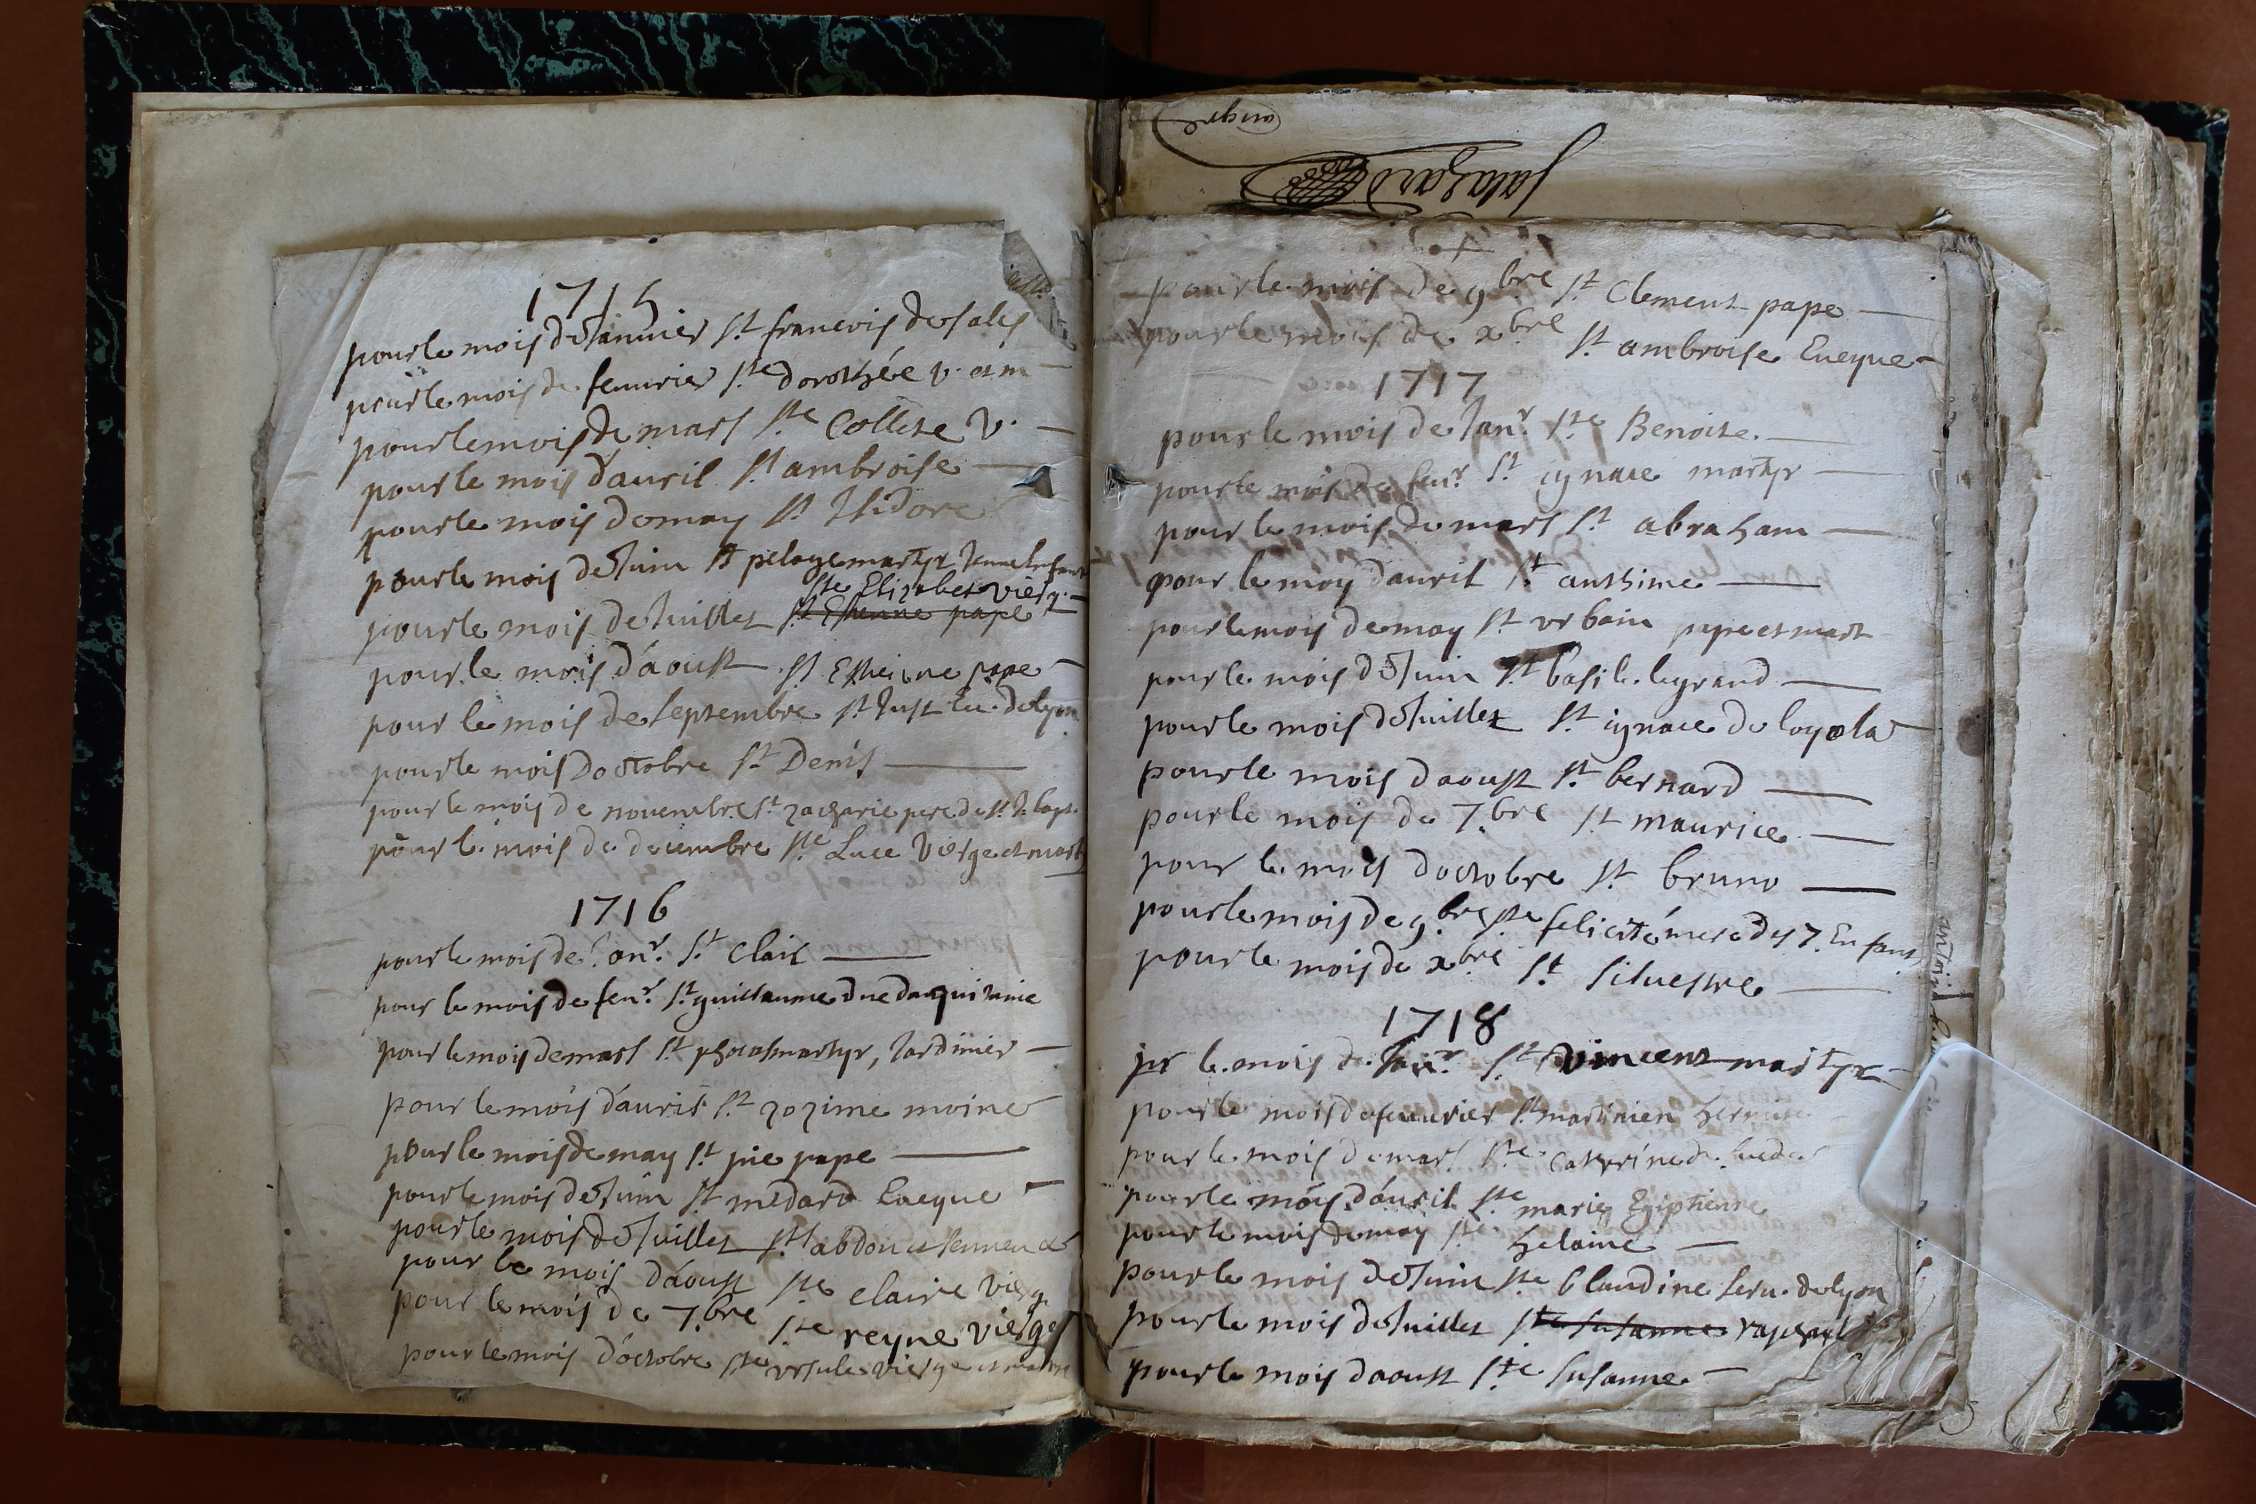 1715
pour le mois de Januier St francois de sales
pour le mois de feuurier Ste dorothée v. et m
pour le mois de mars Ste Collete v.
pour le mois d'auril St ambroise
pour le mois de may St Isidore
pour le mois de Juin St pelage martyr Jeune Enfant
Ste Elizabet vierg.
pour le mois de Juillet St Estienne pape
pour le mois d'aoust St Estienne pape
pour le mois de septembre St Just Eu. de lyon
pour le mois doctobre St Denis
pour le mois de nouembre St zacharie pere de St J. bapt.
pour le mois de decembre Ste Luce vierge et mart
1716
pour le mois de Janr. St Clair
pour le mois de feur. St guillaume duc daquitaine
pour le mois de mars St phocas martyr, Jardinier
pour le mois d'auril St zozime moine
pour le mois de may St pie pape
pour le mois de Juin St medard Eueque
pour le mois de Juillet Sts abdon et sennen
pour le mois d'aoust Ste claire vierg
pour le mois de 7.bre Ste reyne vierge
pour le mois d'octobre Ste vrsule vierge et mart
ange
Salazard
pour le mois de 9bre St Clement pape
pour le mois de xbre St ambroise Eueque
1717
pour le mois de Janr. Ste Benoite.
pour le mois de feur. St ignace martyr
pour le mois de mars St abraham
pour le moy d'auril St anthime
pour le mois de may St vrbain pape et mart
pour le mois de Juin St basile le grand
pour le mois de Juillet St ignace de loyola
pour le mois daoust St bernard
pour le mois de 7.bre St maurice
pour le mois doctobre St bruno
pour le mois de 9.bre Ste felicité mere des 7. Enfans
pour le mois de xbre St siluestre
1718
pr le mois de Janr. St vincent martyr
pour le mois de feuurier St martinien hermite
pour le mois de mars Ste Catherine de suede
pour le mois d'auril Ste marie Egiptienne
pour le mois de may Ste helaine
pour le mois de Juin Ste blandine seru. de lyon
pour le mois de Juillet Ste susanne
pour le mois daoust Ste susanne